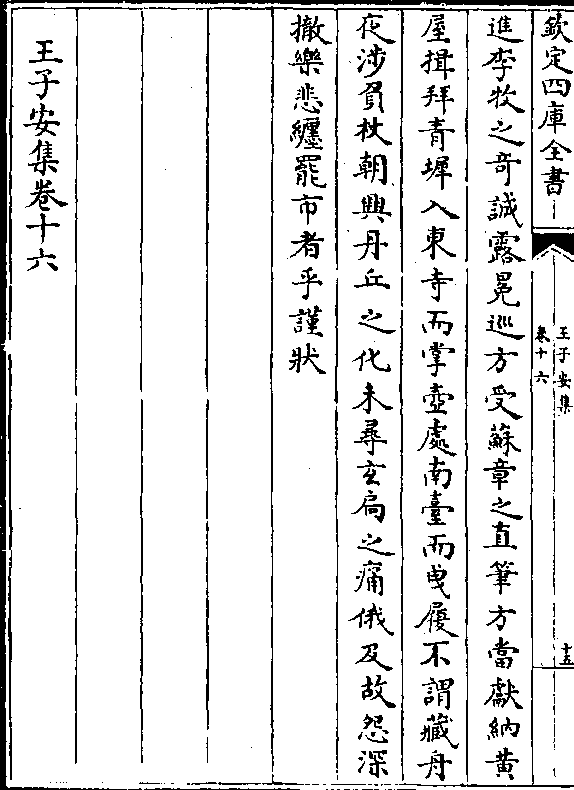 欽定四庫全書
王子安集
卷十六
十五
進李牧之奇誠露冕巡方受蘇章之直筆方當獻納黄
屋揖拜青墀入東寺而掌壺處南臺而曳履不謂藏舟
夜涉負杖朝興丹丘之化未尋玄扃之痛俄及故怨深
撤樂悲纒罷市者乎謹狀
王子安集卷十六